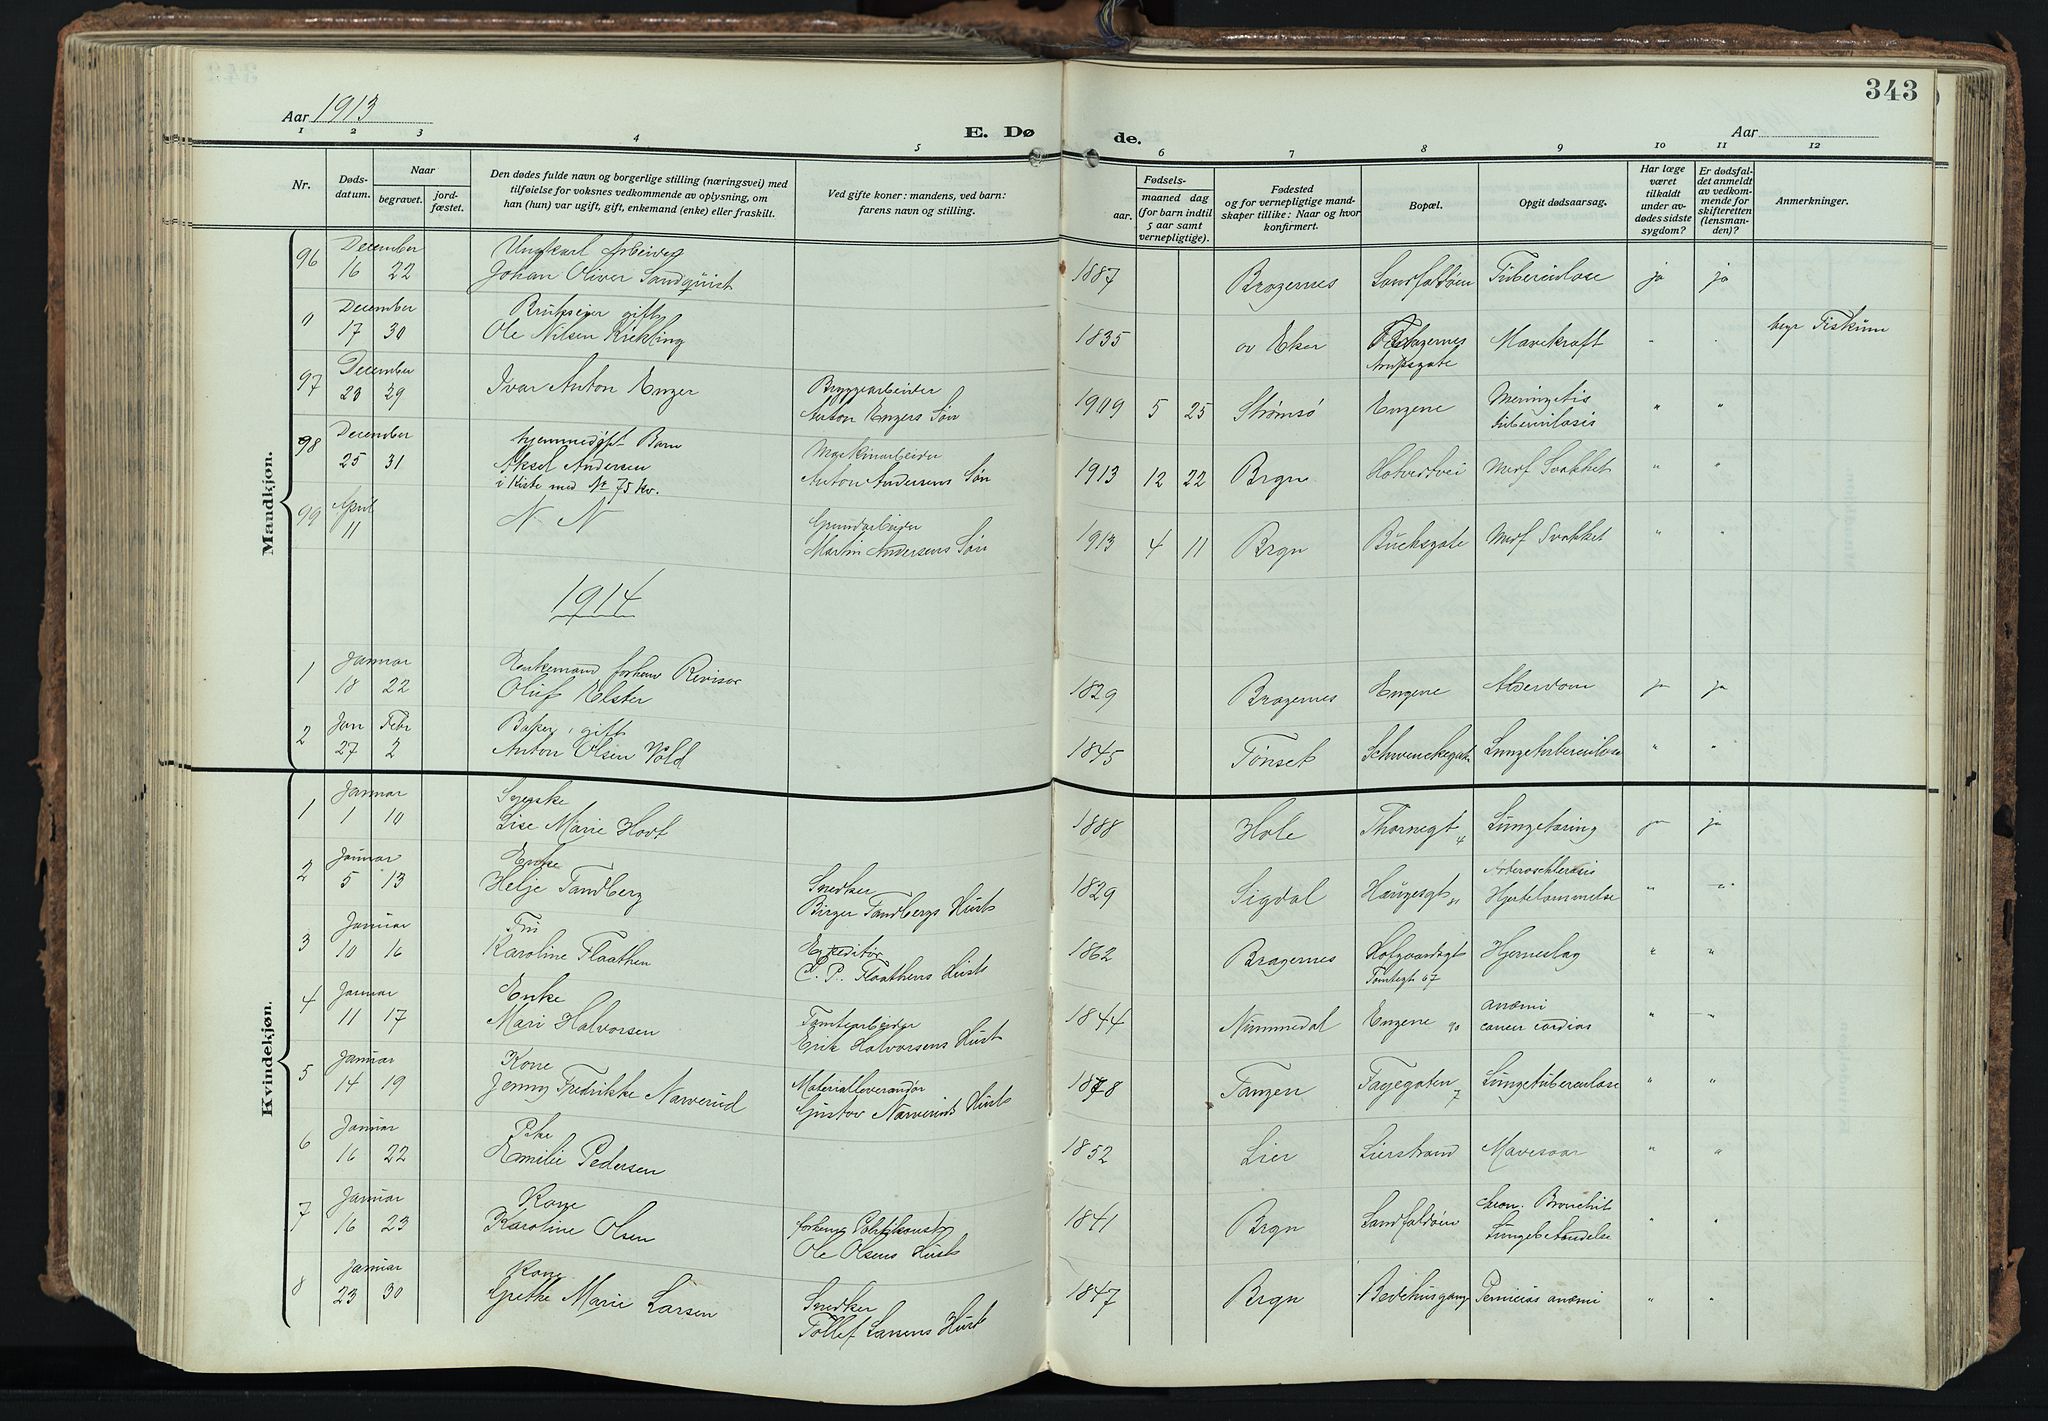 343
Aar 1913
E. Dø de.
Aar
1 2 3 4 5 6 7 8 9 10 11 12
Nr.
Døds-
datum.
Naar
begravet.
jord-
fæstet.
Den dødes fulde navn og borgerlige stilling (næringsvei) med
tilføielse for voksnes vedkommende av oplysning, om
han (hun) var ugift, gift, enkemand (enke) eller fraskilt.
Ved gifte koner: mandens, ved barn:
farens navn og stilling.
Fødsels-
aar.
maaned dag
(for barn indtil
5 aar samt
vernepligtige).
Fødested
og for vernepligtige mand-
skaper tillike: Naar og hvor
konfirmert.
Bopæl.
Opgit dødsaarsag.
Har læge
været
tilkaldt
under av-
dødes sidste
sygdom?
Er dødsfal-
det anmeldt
av vedkom-
mende for
skifteretten
(lensman-
den)?
Anmerkninger.
Mandkjøn.
96 December Ungkarl Arbeider
16 22 Johan Oliver Sandquist 1887 Bragernes Landfaldøen Tuberculose ja ja
0 December Brukseier gift
17 30 Ole Nilsen Krekling 1835 øv Eker Bragernes Mavekræft " " begr Fiskum
97 December
23 29 Ivar Anton Enger Bryggearbeider
Anton Engers Søn 1909 5 25 Strømsø Engene Meningetis
tuberculosis " "
98 December hjemmedøpt Barn
25 31 Aksel Andersen
i Kiste med No 75 kv. Maskinarbeider
Anton Andersens Søn 1913 12 22 Brgn Hotvedtvei Medf Svakhet " "
99 April
11 N N Grundarbeider
Martin Andersens Søn 1913 4 11 Brgn Bucksgate Medf Svakhet " "
1914
1 Januar Enkemand forhenv Revisor
18 22 Oluf Elster 1829 Bragernes Engene Alderdom ja ja
2 Jan Febr Baker, gift
27 2 Anton Olsen Vold 1845 Tønset Schwenckegate Lungetuberculose " "
Kvindekjøn.
1 Januar
1 10 Lise Marie Hovt 1888 Hole Thornegt 4 Lungetæring ja ja
2 Januar Enke
5 13 Helje Tandberg Snedker
Birger Tandbergs Hust 1829 Sigdal Haugesgt 81 Arterioschlerosis
Hjertelammelse " "
3 Januar Fru
10 16 Karoline Flaathen Expeditør
C. P. Flaathens Hust 1862 Bragernes Holgaardsgt
Tomtegt 67 Hjerneslag " "
4 Januar Enke
11 17 Mari Halvorsen Tomtearbeider
Erik Halvorsens Hust 1844 Nummedal Engene 90 anæmi
cancer cardias " "
5 Januar Kone
14 19 Jenny Fredrikke Narverud Materialleverandør
Gustav Narveruds Hust 1878 Tangen Fagegaten 7 Lungetuberculose " "
6 Januar Pike
16 22 Emilie Pedersen 1852 Lier Lierstrand Mavesaar " "
7 Januar Kone
16 23 Karoline Olsen forhenv Politikonst
Ole Olsens Hust 1841 Brgn Landfaldøen chron. Bronchit
Lungebetændelse " "
8 Januar Kone
23 30 Grethe Marie Larsen Snedker
Tollef Larsens Hust 1847 Brgn Bedehusgang Perniciøs anæmi " "